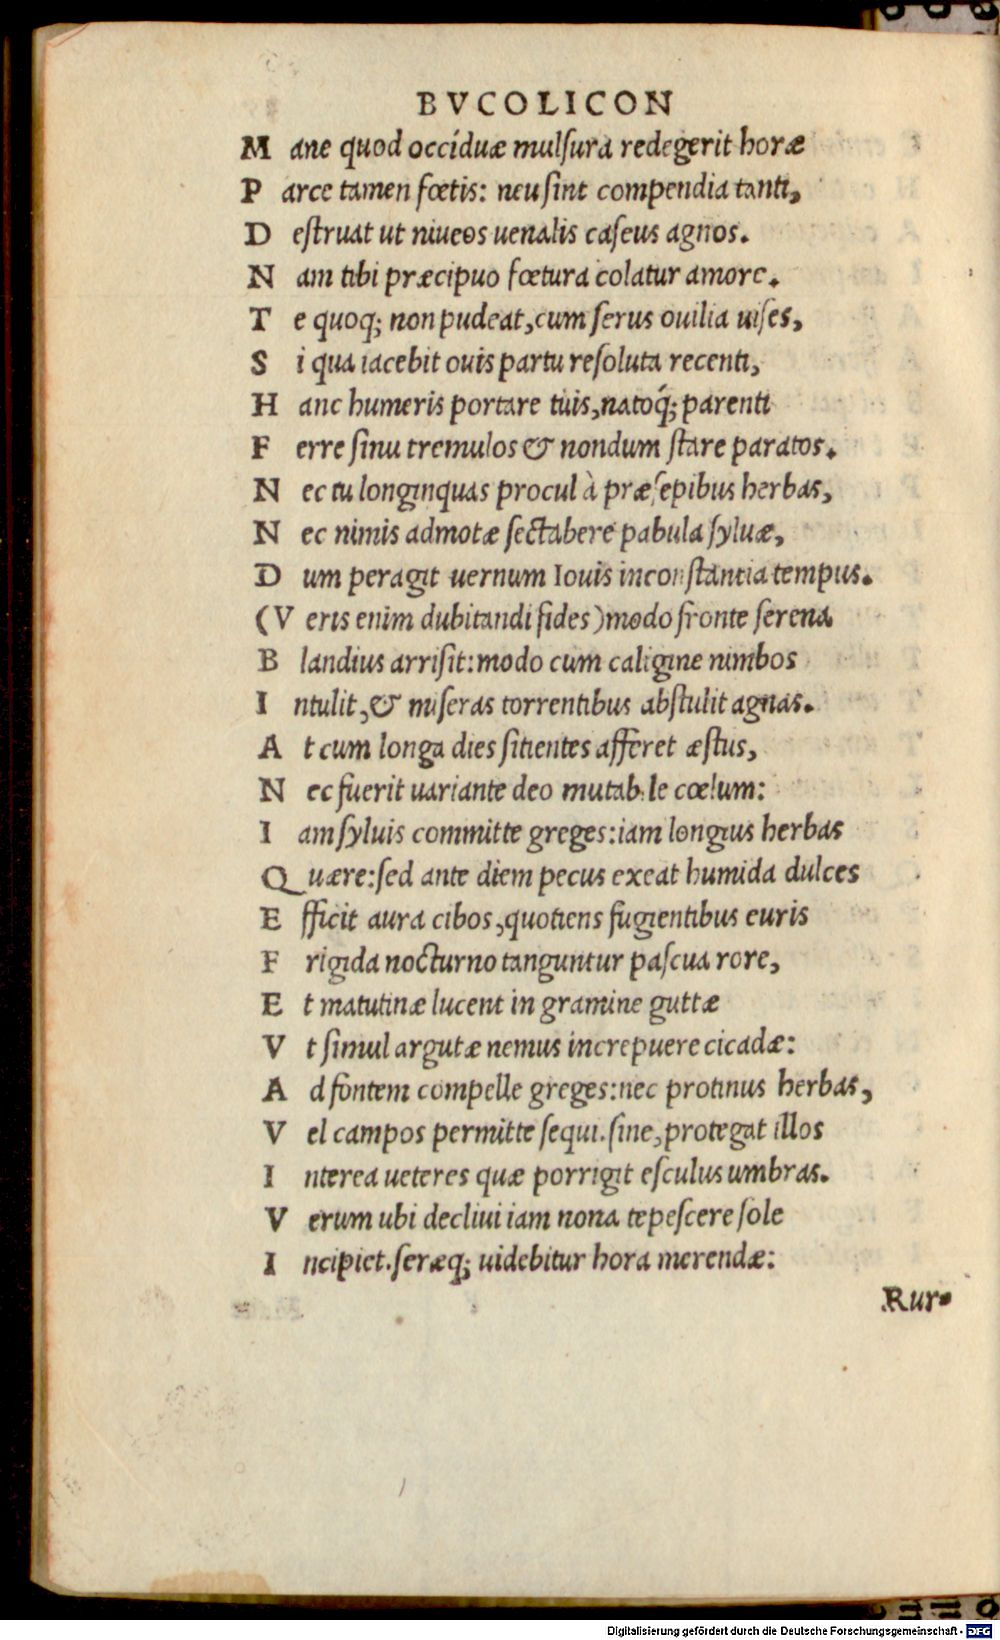 BVCOLICON
M ane quod occíduæ mulſura redegerit horæ
P arce tamen fœtis: neu ſint compendia tanti,
D eſtruat ut niueos uenalis caſeus agnos.
N am tibi præcipuo fœtura colatur amore.
T e quoq; non pudeat, cum ſerus ouilia uiſes,
S i qua iacebit ouis partu reſoluta recenti,
H anc humeris portare tuis, natoq́; parenti
F erre ſinu tremulos & nondum ſtare paratos.
N ec tu longinquas procul à præſepibus herbas,
N ec nimis admotæ ſectabere pabula ſyluæ,
D um peragit uernum Iouis inconſtantia tempus.
(V eris enim dubitandi fides) modo fronte ſerena
B landius arriſit: modo cum caligine nimbos
I ntulit, & miſeras torrentibus abſtulit agnas.
A t cum longa dies ſitientes afferet æſtus,
N ec fuerit uariante deo mutabile cœlum:
I am ſyluis committe greges: iam longius herbas
Q uære: ſed ante diem pecus exeat humida dulces
E fficit aura cibos, quotiens fugientibus euris
F rigida nocturno tanguntur paſcua rore,
E t matutinæ lucent in gramine guttæ
V t ſimul argutæ nemus increpuere cicadæ:
A d fontem compelle greges: nec protinus herbas,
V el campos permitte ſequi. ſine, protegat illos
I nterea ueteres quæ porrigit eſculus umbras.
V erum ubi decliui iam nona tepeſcere ſole
I ncipiet. ſeræq; uidebitur hora merendæ:
Rur-
Digitalisierung gefördert durch die Deutsche Forschungsgemeinschaft - DFG